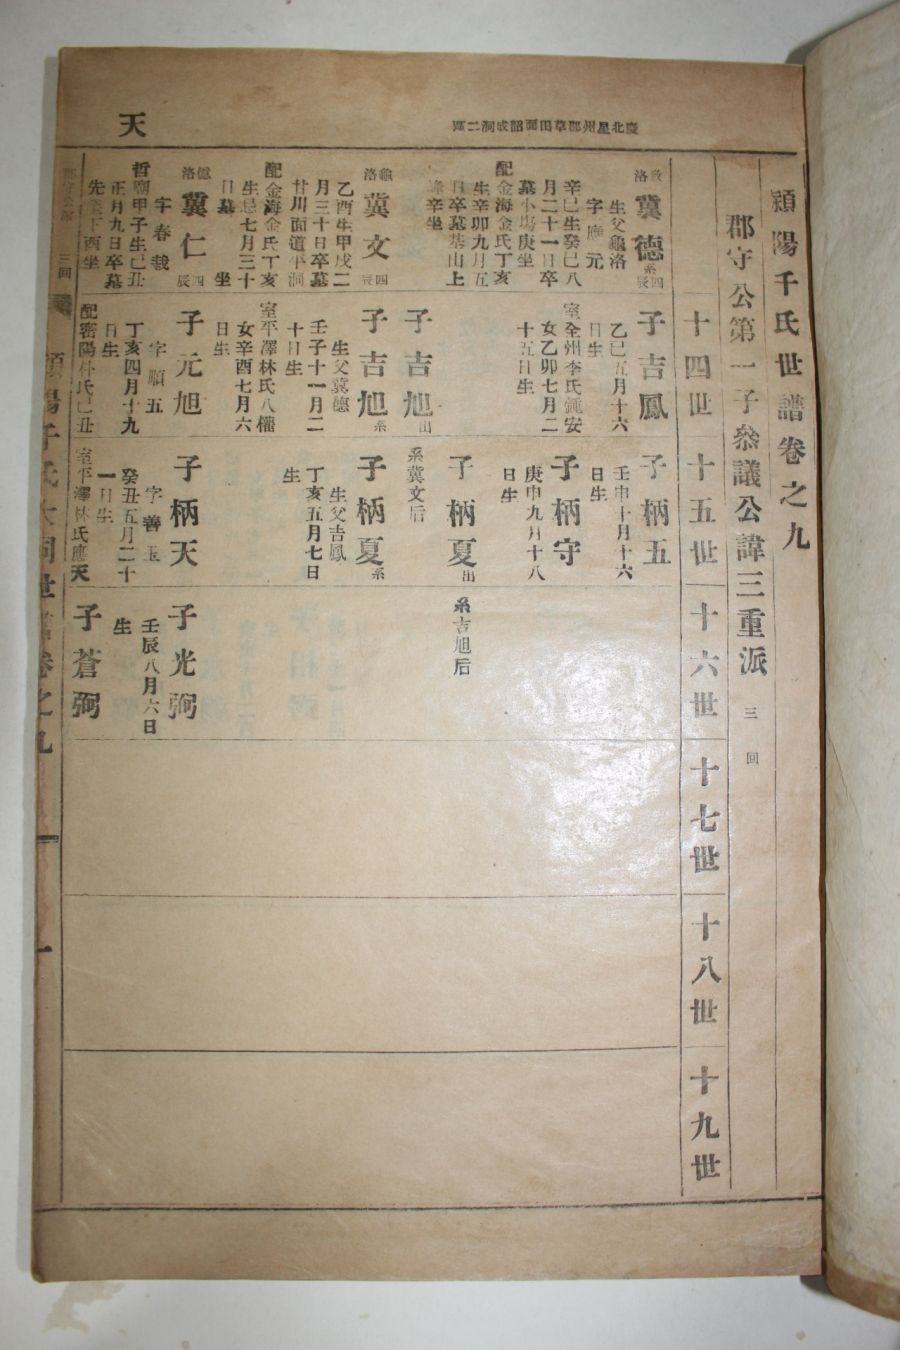 天
慶北星州郡草田面韶成洞二區
穎陽千氏世譜卷之九
郡守公第一子叅議公諱三重派
三回
十四世
十五世
十六世
十七世
十八世
十九世
洛
冀德
系
四
辰
生父龜洛
字應元
辛巳生癸巳八
月二十一日卒
墓小塢庚坐
配金海金氏丁亥
生辛卯九月五
日卒墓基山上
辛坐
龜
洛
冀文
四
辰
乙酉生甲戌二
月三十日卒墓
甘川面道平洞
配金海金氏丁亥
生忌七月三十
日墓 坐
洛
冀仁
四
辰
字春哉
哲廟甲子生己丑
正月九日卒墓
先 下酉坐
子吉鳳
乙巳五月十六
日生
室全州李氏鍾安
女乙卯七月二
十五日生
子吉旭
出
系冀文后
子吉旭
系
生父冀德
壬子十一月二
十日生
室平澤林氏八權
女辛酉七月六
日生
子元旭
字順五
丁亥四月十九
日生
配密陽朴氏己丑
子柄五
壬申十月十六
日生
子柄守
庚申九月十八
日生
子柄夏
出
系吉旭后
子柄夏
系
生父吉鳳
丁亥五月七日
生
子柄天
字善玉
癸丑五月二十
一日生
室平澤林氏應天
子光弼
壬辰八月六日
生
子蒼弼
三回
穎陽千氏大同世譜卷之九
一